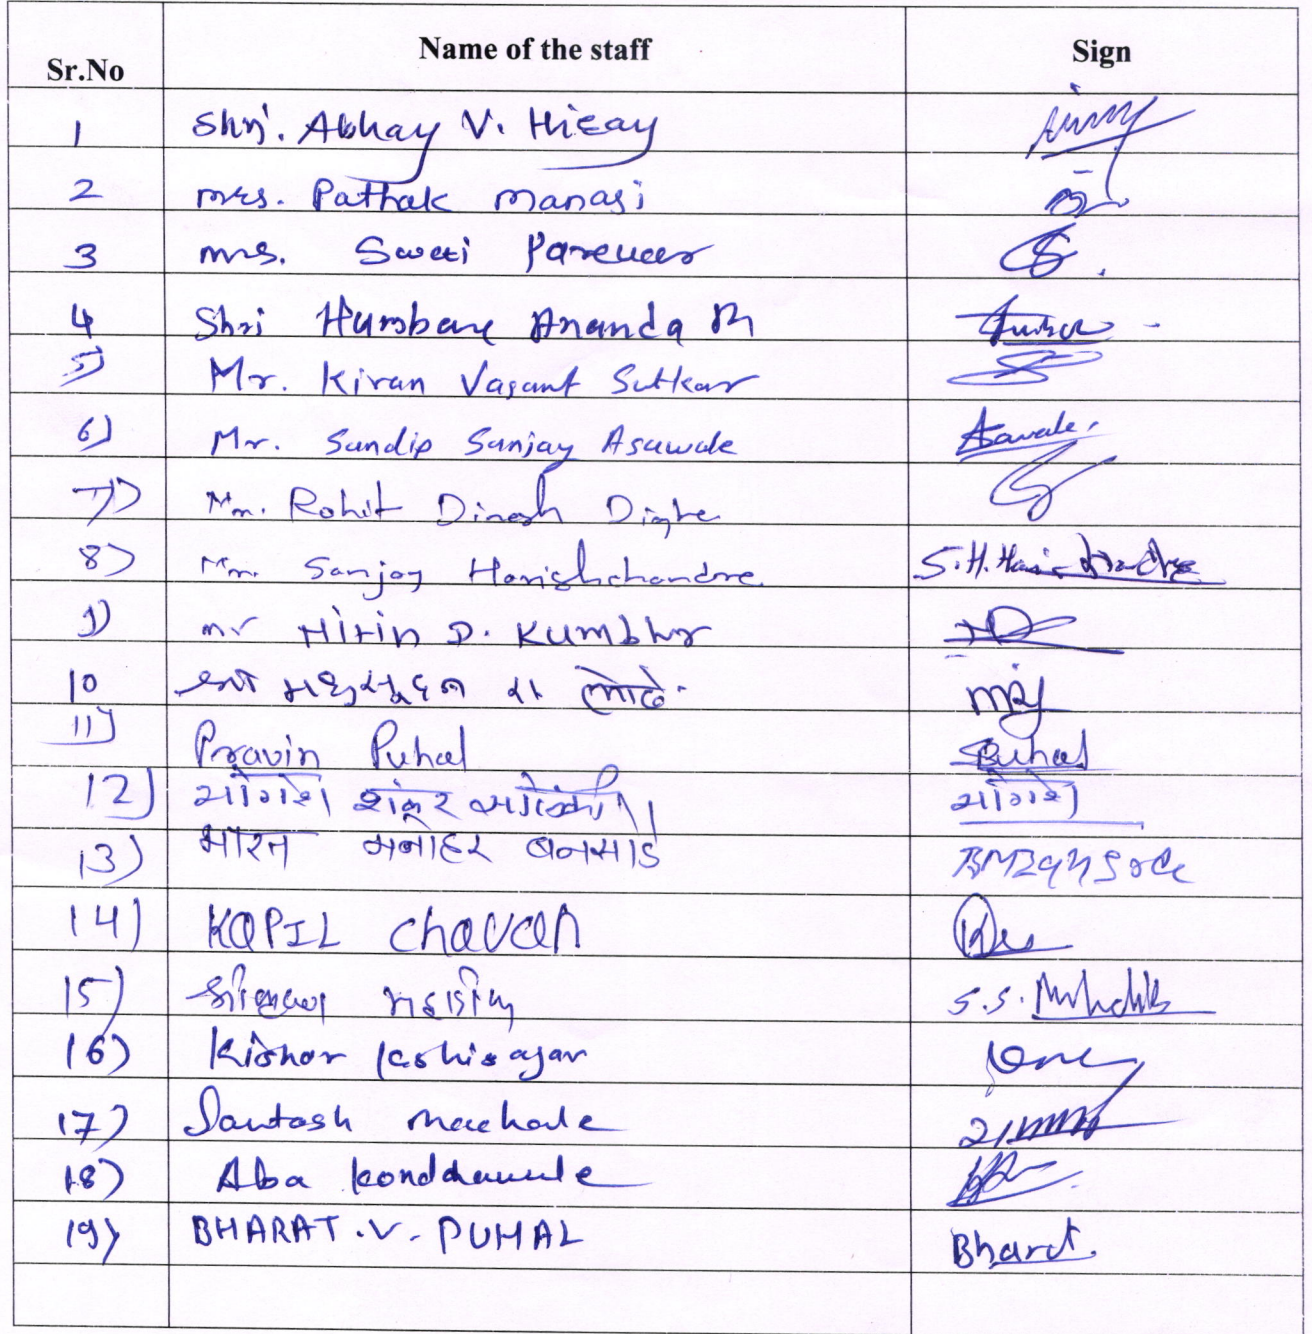 Sr.No Name of the staff Sign
1 Shri. Abhay V. Hiray
2 mrs. Pathak manasi
3 mrs. Swati
4 Shri Humbare Ananda
5) Mr. Kiran Vasant Sutkar
6) Mr. Sandip Sanjay Asawale Asawale.
7) Mr. Rohit Dinesh Dighe
8) Mr. Sanjay Harishchandre S.H. Harishchandre
9) mr Nitin D. Kumbhar
10 श्री मधुसूदन रा
11) Pravin Puhal Puhal
12) योगेश शंकर योगेश
13) भारत मनोहर बनसोडे
14) KAPIL Chavan
15) महाडिक S.S. Mahadik
16) Kishor
17) Santosh machale
18) Aba kondhawale
19) BHARAT.V. PUHAL Bharat.